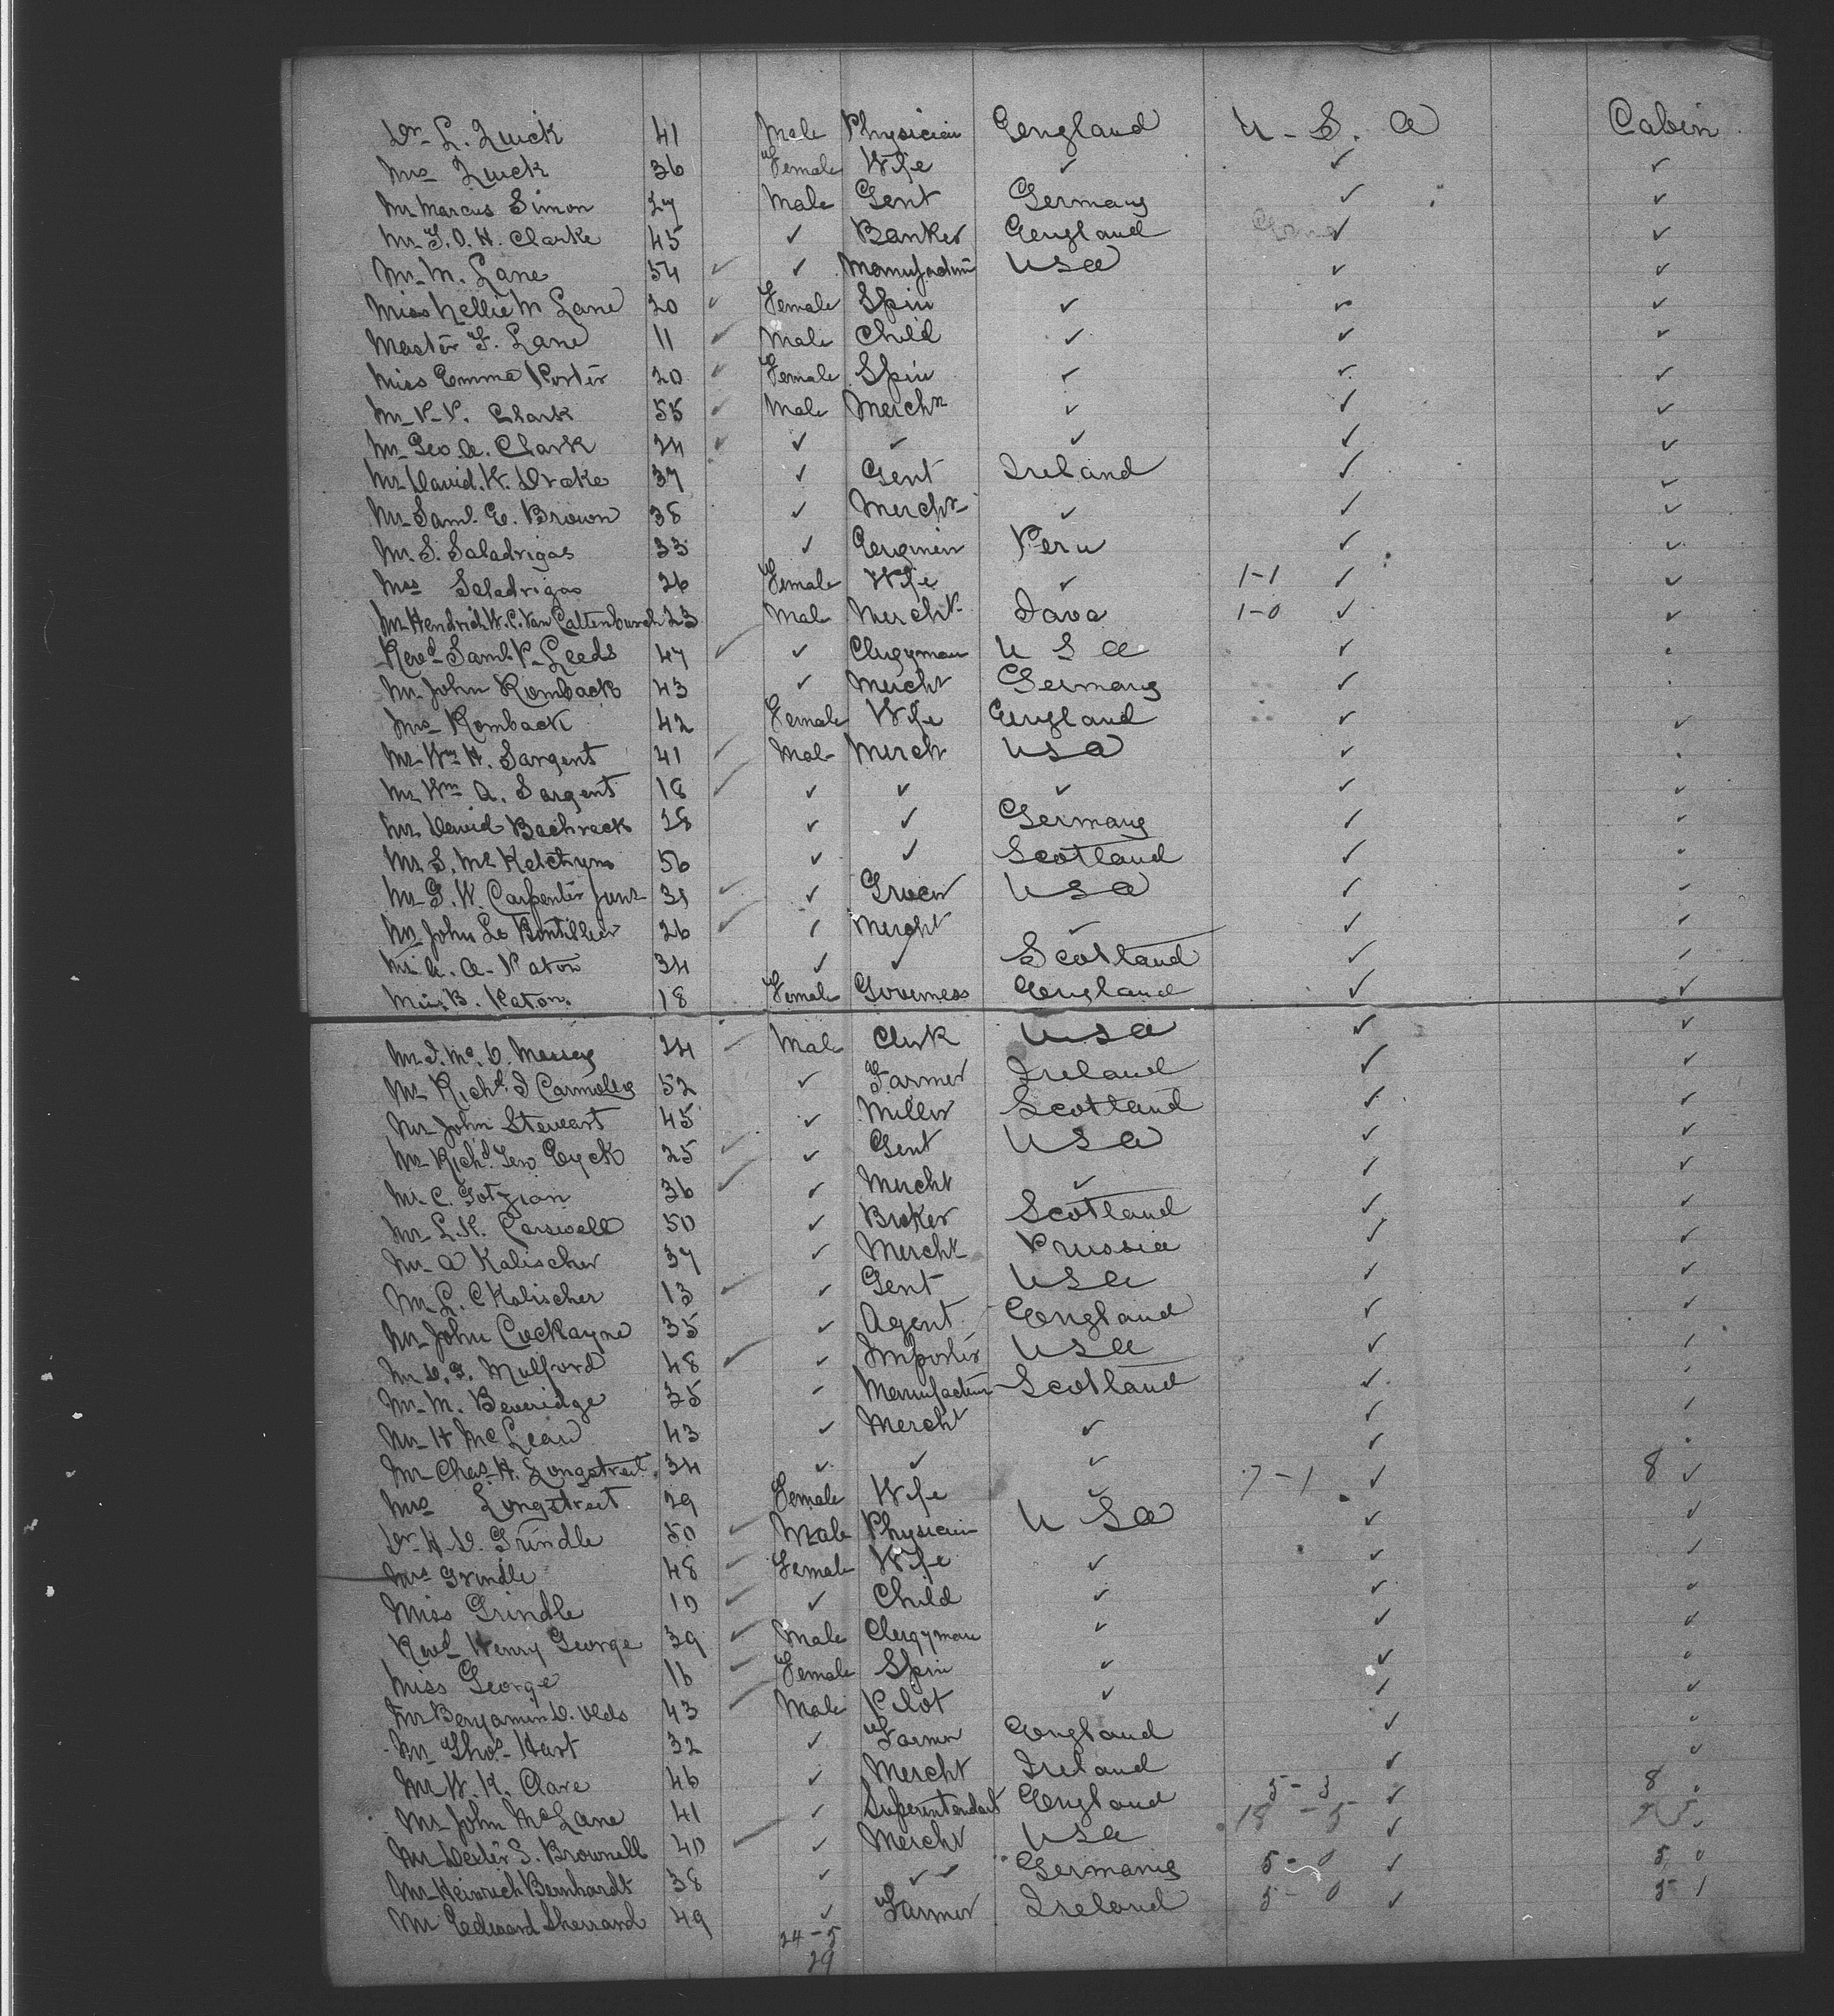 Dr L. Quick 41 Male Physician England U. S. A Cabin
Mrs Quick 36 Female Wife ✓ ✓ ✓
Mr Marcus Simon 27 Male Gent Germany ✓ ✓
Mr T. O. H. Clarke 45 ✓ Banker England ✓ ✓
Mr M. Lane 54 ✓ ✓ Manufactur USA ✓ ✓
Miss Nellie M Lane 20 ✓ Female Spin ✓ ✓ ✓
Master F. Lane 11 ✓ Male Child ✓ ✓ ✓
Miss Emma Porter 20 ✓ Female Spin ✓ ✓ ✓
Mr P. P. Clark 55 ✓ Male Mercht ✓ ✓ ✓
Mr Geo. A. Clark 24 ✓ ✓ ✓ ✓ ✓ ✓
Mr David. K. Drake 37 ✓ Gent Ireland ✓ ✓
Mr Saml. E. Brown 38 ✓ Mercht ✓ ✓ ✓
Mr S. Saladrigas 33 ✓ Peru ✓ ✓
Mrs Saladrigas 26 Female Wife ✓ 1-1 ✓ ✓
Mr Hendrich W. C. Van Cattenburch 23 Male Mercht Java 1-0 ✓ ✓
Revd Saml. P. Leeds 47 ✓ ✓ Clergyman U S A ✓
Mr John Romback 43 ✓ Mercht Germany ✓
Mrs Romback 42 Female Wife England ✓ ✓
Mr Wm H. Sargent 41 ✓ Male Mercht USA ✓
Mr Wm A. Sargent 18 ✓ ✓ ✓ ✓ ✓ ✓
Mr David Bachrack 28 ✓ ✓ Germany ✓ ✓
Mr S. Mc Ketchyn 56 ✓ ✓ Scotland ✓
Mr G. W. Carpenter Junr ✓ ✓ Grocer USA ✓ ✓
Mr John Le Boutillier 26 ✓ ✓ Mercht ✓ ✓
Mr A. Paton 34 ✓ ✓ Scotland ✓ ✓
Miss B. Paton 18 Female Governess England ✓ ✓
Mr J. Mc. D. Massey 24 ✓ Male Clerk USA ✓ ✓
Mr Richd. J Carmoley 52 ✓ Farmer Ireland ✓ ✓
Mr John Stewart 45 ✓ Miller Scotland ✓ ✓
Mr Richd. Ten Eyck 25 ✓ ✓ Gent USA ✓ ✓
Mr C. Gotzian 36 ✓ ✓ Mercht ✓ ✓ ✓
Mr L. H. Carswell 50 ✓ Broker Scotland ✓ ✓
Mr A Kalischer 37 ✓ Mercht Prussia ✓ ✓
Mr L. C Kalischer 13 ✓ ✓ Gent USA ✓ ✓
Mr John Cockayne 35 ✓ Agent England ✓ ✓
Mr D. G. Mulford 48 ✓ ✓ Importer USA ✓ ✓
Mr M. Beveridge 35 ✓ Manufactur Scotland ✓
Mr H McLean 43 ✓ Mercht ✓ ✓ ✓
Mr Chas. H. Longstreet 34 ✓ ✓ ✓ ✓
Mrs Longstreet 29 Female Wife ✓ 7-1 ✓ 8 ✓
Dr H. D. Grindle 50 ✓ Male Physician U SA ✓ ✓
Mrs Grindle 48 ✓ Female Wife ✓ ✓ ✓
Miss Grindle 10 ✓ ✓ Child ✓ ✓ ✓
Revd Henry George 39 ✓ Male Clergyman ✓ ✓ ✓
Miss George 16 ✓ Female Spin ✓ ✓ ✓
Mr Benjamin D. Olds 43 ✓ Male Pilot ✓ ✓ ✓
Mr Thos. Hart 32 ✓ Farmer England ✓ ✓
Mr W. K. Clare 46 ✓ Mercht Ireland ✓ ✓
Mr John McLane 41 ✓ Superintendant England 5-3 ✓ 8
Mr Dexter S. Brownell 40 ✓ ✓ Mercht USA 18-5 ✓
Mr Heinrich Bernhardt 38 ✓ ✓ Germany 5-0 ✓ 5
Mr Edward Sherrard 49 ✓ Farmer Ireland 5-0 ✓ 5
24-5
29